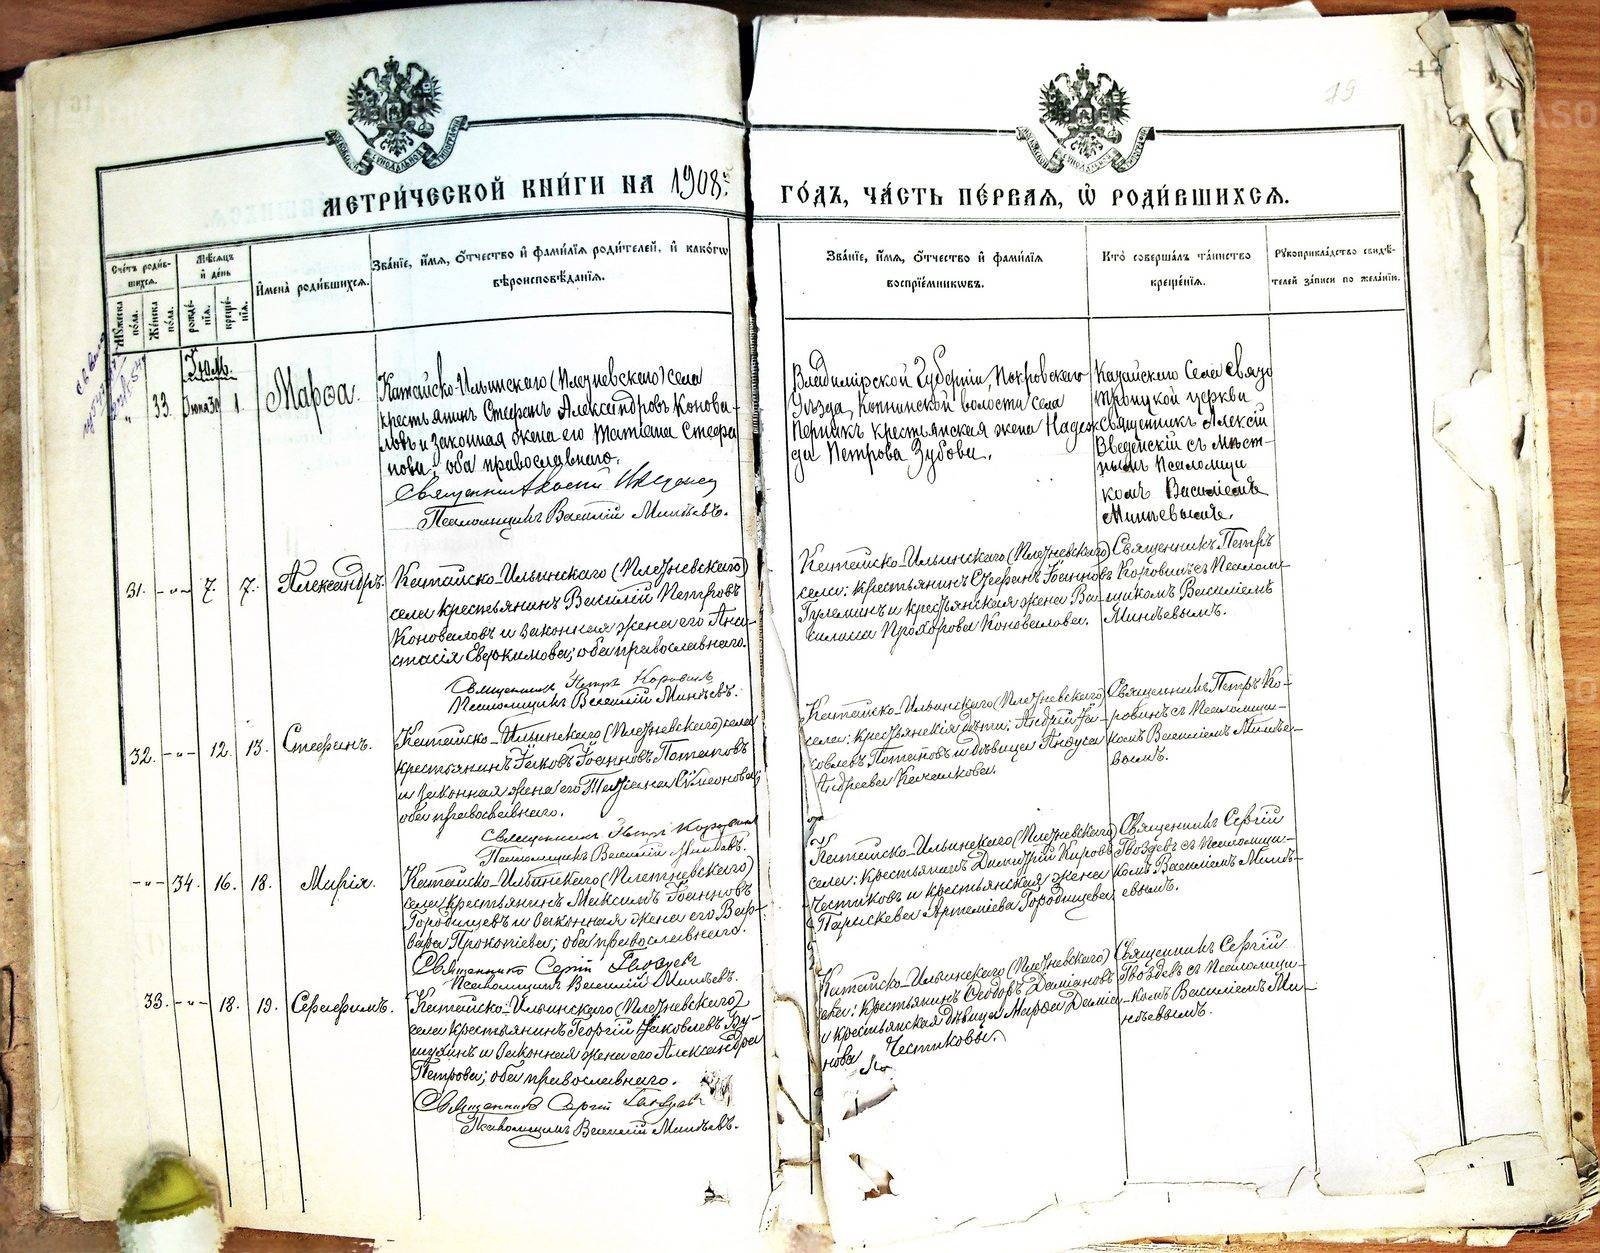 МЕТРИ́ЧЕСКОЙ КНИ́ГИ НА 1908.
ГО́ДЪ, ЧА́СТЬ ПЕ́РВАЯ, Ѡ҆ РОДИ́ВШИХСЯ.
Сче́тъ роди́вшихся.
Му́жеска по́ла.
Же́нска по́ла.
Мѣ́сяцъ и҆ де́нь
рожде́нїя.
креще́нїя.
И҆мена̀ роди́вшихся.
Зва́нїе, и҆́мя, ѻ҆́тчество и҆ фами́лїя роди́телей, и҆ како́гѡ
вѣроисповѣ́данїя.
Зва́нїе, и҆́мя, ѻ҆́тчество и҆ фами́лїя
воспрїе́мникѡвъ.
Кто̀ соверша́лъ та́инство
креще́нїя.
Рꙋкоприкла́дство свидѣ́-
телей за́писи по жела́нїю.
Іюль.
" 33. Іюня 30 1. Марѳа.
Катайско-Ильинскаго (Плетневскаго) села
крестьянинъ Стефанъ Александровъ Конова-
ловъ и законная жена его Татіана Стефа
нова; оба православнаго.
Псаломщикъ Василій Минѣевъ.
Владимірской Губерніи, Покровскаго
Уѣзда, Копнинской волости села
крестьянская жена Надеж
да Петрова Зубова.
Катайскаго Села Свято
Троицкой церкви
Священникъ Алексій
Введенскій съ мѣст-
нымъ Псаломщи
комъ Василіемъ
Минѣевымъ.
31. -"- 7. 7. Александръ.
Катайско-Ильинскаго (Плетневскаго)
села крестьянинъ Василій Петровъ
Коноваловъ и законная жена его Ана-
стасія Евфимова; оба православнаго.
Священникъ Петръ Коровинъ
Псаломщикъ Василій Минѣевъ.
Катайско-Ильинскаго (Плетневскаго)
села: крестьянинъ Стефанъ Іоанновъ
и крестьянская жена Ва-
силиса Прохорова Коновалова.
Священникъ Петръ
Коровинъ съ Псалом-
щикомъ Василіемъ
Минѣевымъ.
32. -"- 12. 13. Стефанъ.
Катайско-Ильинскаго (Плетневскаго) села
крестьянинъ Іаковъ Іоанновъ Потаповъ
и законная жена его Татіана Сѵмеонова;
оба православнаго.
Священникъ Петръ Коровинъ
Псаломщикъ Василій Минѣевъ.
Катайско-Ильинскаго (Плетневскаго)
села: крестьянскія дѣти: Андрей Іа-
ковлевъ Потаповъ и дѣвица Анфуса
Андреева
Священникъ Петръ Ко-
ровинъ съ Псаломщи-
комъ Василіемъ Минѣе-
вымъ.
-"- 34. 16. 18. Марія.
Катайско-Ильинскаго (Плетневскаго)
села крестьянинъ Максимъ Іоанновъ
Городищевъ и законная жена его Вар-
вара Прокопіева; оба православнаго.
Священникъ Сергій Гвоздевъ
Псаломщикъ Василій Минѣевъ.
Катайско-Ильинскаго (Плетневскаго)
села: Крестьянинъ Димитрій Кировъ
Честиковъ и крестьянская жена
Параскева Артеміева Городищева.
Священникъ Сергій
Гвоздевъ съ Псаломщи-
комъ Василіемъ Минѣ-
евымъ.
33. -"- 18. 19. Серафимъ.
Катайско-Ильинскаго (Плетневскаго)
села крестьянинъ Георгій Іаковлевъ
и законная жена его Александра
Петрова; оба православнаго.
Священникъ Сергій Гвоздевъ
Псаломщикъ Василій Минѣевъ.
Катайско-Ильинскаго (Плетневскаго)
села: Крестьянинъ Ѳеодоръ Даміановъ
и крестьянская дѣвица Марѳа Даміа-
нова Честиковы.
Священникъ Сергій
Гвоздевъ съ Псаломщи-
комъ Василіемъ Ми-
нѣевымъ.